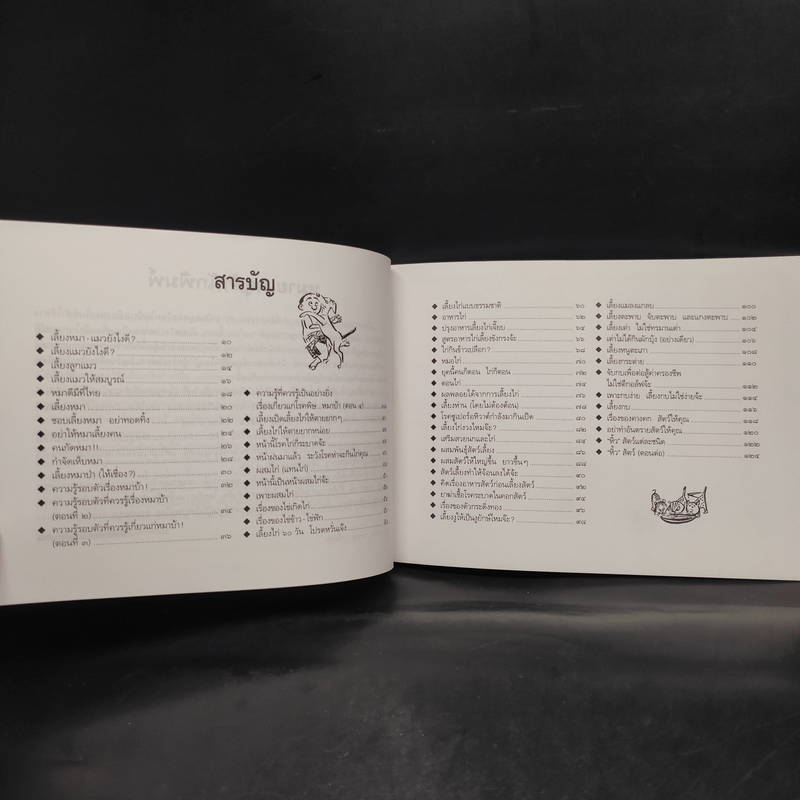 สารบัญ
◆ เลี้ยงหมา - แมวยังไงดี? ๑๐
◆ เลี้ยงแมวยังไงดี? ๑๒
◆ เลี้ยงลูกแมว ๑๔
◆ เลี้ยงแมวให้สมบูรณ์ ๑๖
◆ หมาดีมีที่ไทย ๑๘
◆ เลี้ยงหมา ๒๐
◆ ชอบเลี้ยงหมา อย่าทอดทิ้ง ๒๒
◆ อย่าให้หมาเลี้ยงคน ๒๔
◆ คนกัดหมา!! ๒๖
◆ กำจัดเห็บหมา ๒๘
◆ เลี้ยงหมาป่า (ให้เชื่อง?) ๓๐
◆ ความรู้รอบตัวเรื่องหมาบ้า! ๓๒
◆ ความรู้รอบตัวที่ควรรู้เรื่องหมาบ้า
(ตอนที่ ๒) ๓๔
◆ ความรู้รอบตัวที่ควรรู้เกี่ยวแก่หมาบ้า!
(ตอนที่ ๓) ๓๖
◆ ความรู้ที่ควรรู้เป็นอย่างยิ่ง
เรื่องเกี่ยวแก่โรคพิษ...หมาบ้า (ตอน ๔)
◆ เลี้ยงเป็ดเลี้ยงไก่ให้ตายยากๆ
◆ เลี้ยงไก่ให้ตายยากหน่อย
◆ หน้านี้โรคไก่ก็ระบาดจ้ะ
◆ หน้าฝนมาแล้ว ระวังโรคห่าจะกินไก่คุณ
◆ ผสมไก่ (แทนไก่)
◆ หน้านี้เป็นหน้าผสมไก่จ้ะ
◆ เพาะผสมไก่
◆ เรื่องของไข่เกิดไก่
◆ เรื่องของไข่ข้าว - ไข่ฟัก
◆ เลี้ยงไก่ ๖๐ วัน โปรดหวั่นแจ๊ง
◆ เลี้ยงไก่แบบธรรมชาติ ๖๐
◆ อาหารไก่ ๖๒
◆ ปรุงอาหารเลี้ยงไก่เจี๊ยบ ๖๔
◆ สูตรอาหารไก่เลี้ยงขังกรงจ้ะ ๖๖
◆ ไก่กินข้าวเปลือก? ๖๘
◆ หมอไก่ ๗๐
◆ ยุคนี้คนก็ตอน ไก่ก็ตอน ๗๒
◆ ตอนไก่ ๗๔
◆ ผลพลอยได้จากการเลี้ยงไก่ ๗๖
◆ เลี้ยงห่าน (โดยไม่ต้องต้อน) ๗๘
◆ โรคซูเปอร์อหิวาต์กำลังมากินเป็ด ๘๐
◆ เลี้ยงไก่งวงไหมจ๊ะ? ๘๒
◆ เสริมสวยนกและไก่ ๘๔
◆ ผสมพันธุ์สัตว์เลี้ยง ๘๖
◆ ผสมสัตว์ให้ใหญ่ขึ้น ยาวขึ้นๆ ๘๘
◆ สัตว์เลี้ยงทำให้จ๋อนลงได้จ้ะ ๙๐
◆ คิดเรื่องอาหารสัตว์ก่อนเลี้ยงสัตว์ ๙๒
◆ ยาฆ่าเชื้อโรคระบาดในคอกสัตว์ ๙๔
◆ เรื่องของตัวกระดิ่งทอง ๙๖
◆ เลี้ยงงูให้เป็นงูยักษ์ไหมจ๊ะ? ๙๘
◆ เลี้ยงแมลงแกลบ ๑๐๐
◆ เลี้ยงตะพาบ จับตะพาบ และแกงตะพาบ ๑๐๒
◆ เลี้ยงเต่า ไม่ใช่ทรมานเต่า ๑๐๔
◆ เต่าไม่ได้กินผักบุ้ง (อย่างเดียว) ๑๐๖
◆ เลี้ยงหนูตะเภา ๑๐๘
◆ เลี้ยงกระต่าย ๑๑๐
◆ จับกบเพื่อต่อสู้ค่าครองชีพ
ไม่ใช่ตีกอล์ฟจ้ะ ๑๑๒
◆ เพาะกบง่าย เลี้ยงกบไม่ใช่ง่ายจ้ะ ๑๑๔
◆ เลี้ยงกบ ๑๑๖
◆ เรื่องของคางคก สัตว์ให้คุณ ๑๑๘
◆ อย่าทำอันตรายสัตว์ให้คุณ ๑๒๐
◆ "หิ้ว" สัตว์แต่ละชนิด ๑๒๒
◆ "หิ้ว" สัตว์ (ตอนต่อ) ๑๒๔